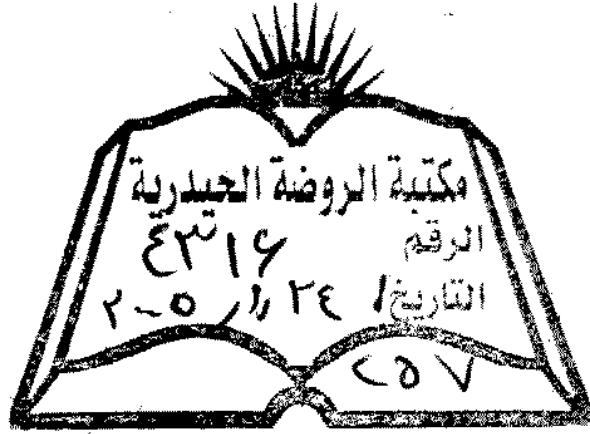 مكتبة الروضة الحيدرية
الرقم ٤٣١٦
التاريخ / ٢٤
٢٥٧